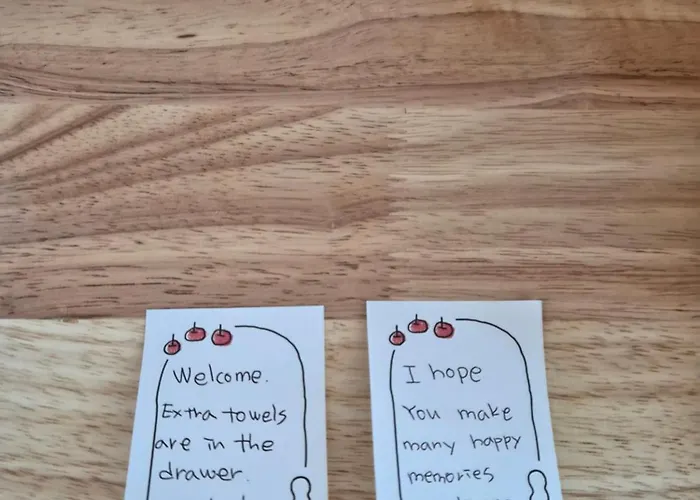 Welcome.
Extra towels
are in the
drawer.
I hope
You make
many happy
memories